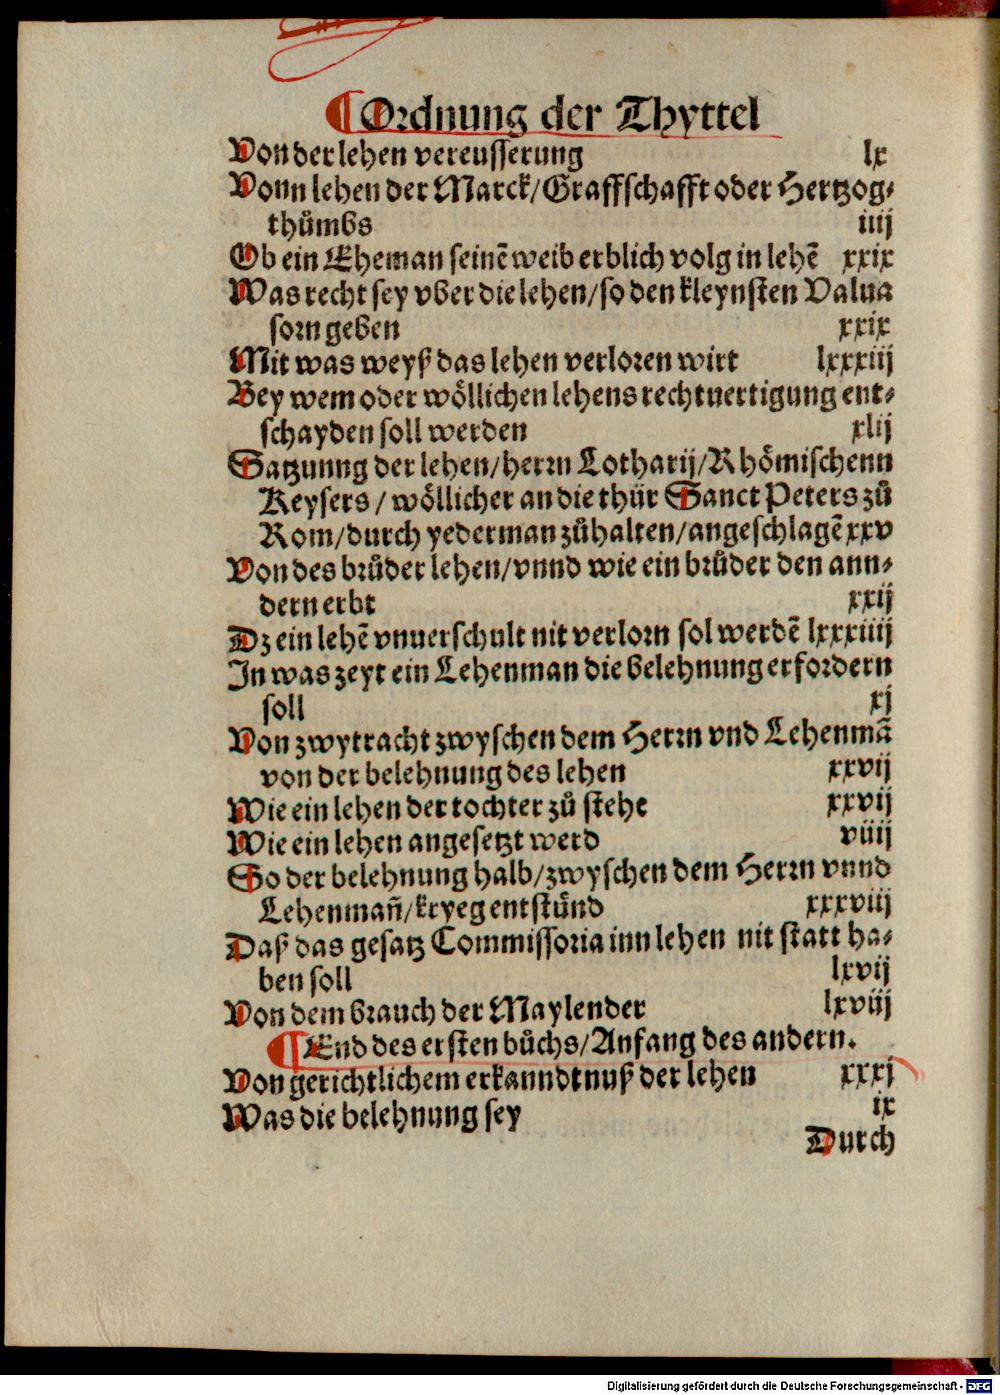 ¶ Ordnung der Thyttel
Von der lehen vereusserung lx
Vonn lehen der Marck/Graffschafft oder Hertzog⸗
thuͤmbs iiij
Ob ein Eheman seinē weib erblich volg in lehē xxix
Was recht sey vber die lehen/so den kleynsten Valua
sorn geben xxix
Mit was weyß das lehen verloren wirt lxxxiij
Bey wem oder woͤllichen lehens rechtuertigung ent⸗
schayden soll werden xlij
Satzunng der lehen/herrn Lotharij/Rhoͤmischenn
Keysers/woͤllicher an die thür Sanct Peters zuͦ
Rom/durch yederman zuͦhalten/angeschlagē xxv
Von des bruͦder lehen/vnnd wie ein bruͦder den ann⸗
dern erbt xxij
Dz ein lehē vnuerschult nit verlorn sol werdē lxxxiiij
In was zeyt ein Lehenman die belehnung erfordern
soll xj
Von zwytracht zwyschen dem Herrn vnd Lehenmā
von der belehnung des lehen xxvij
Wie ein lehen der tochter zuͦ steht xxvij
Wie ein lehen angesetzt werd viiij
So der belehnung halb/zwyschen dem Herrn vnnd
Lehenman̄/kryeg entstuͤnd xxxviij
Daß das gesatz Commissoria inn lehen nit statt ha⸗
ben soll lxvij
Von dem brauch der Maylender lxviij
¶ End des ersten buͦchs/Anfang des andern.
Von gerichtlichem erkanndtnuß der lehen xxxj
Was die belehnung sey ix
Durch
Digitalisierung gefördert durch die Deutsche Forschungsgemeinschaft - DFG